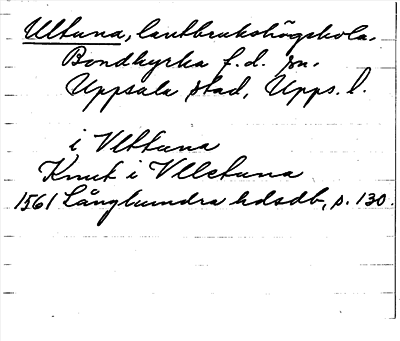 Ultuna, lantbrukshögskola,
Bondkyrka f.d. sn.
Uppsala stad, Upps. l.
i Vlttuna
Knut i Vlletuna
1561 Långhundra hdsdb, s. 130.